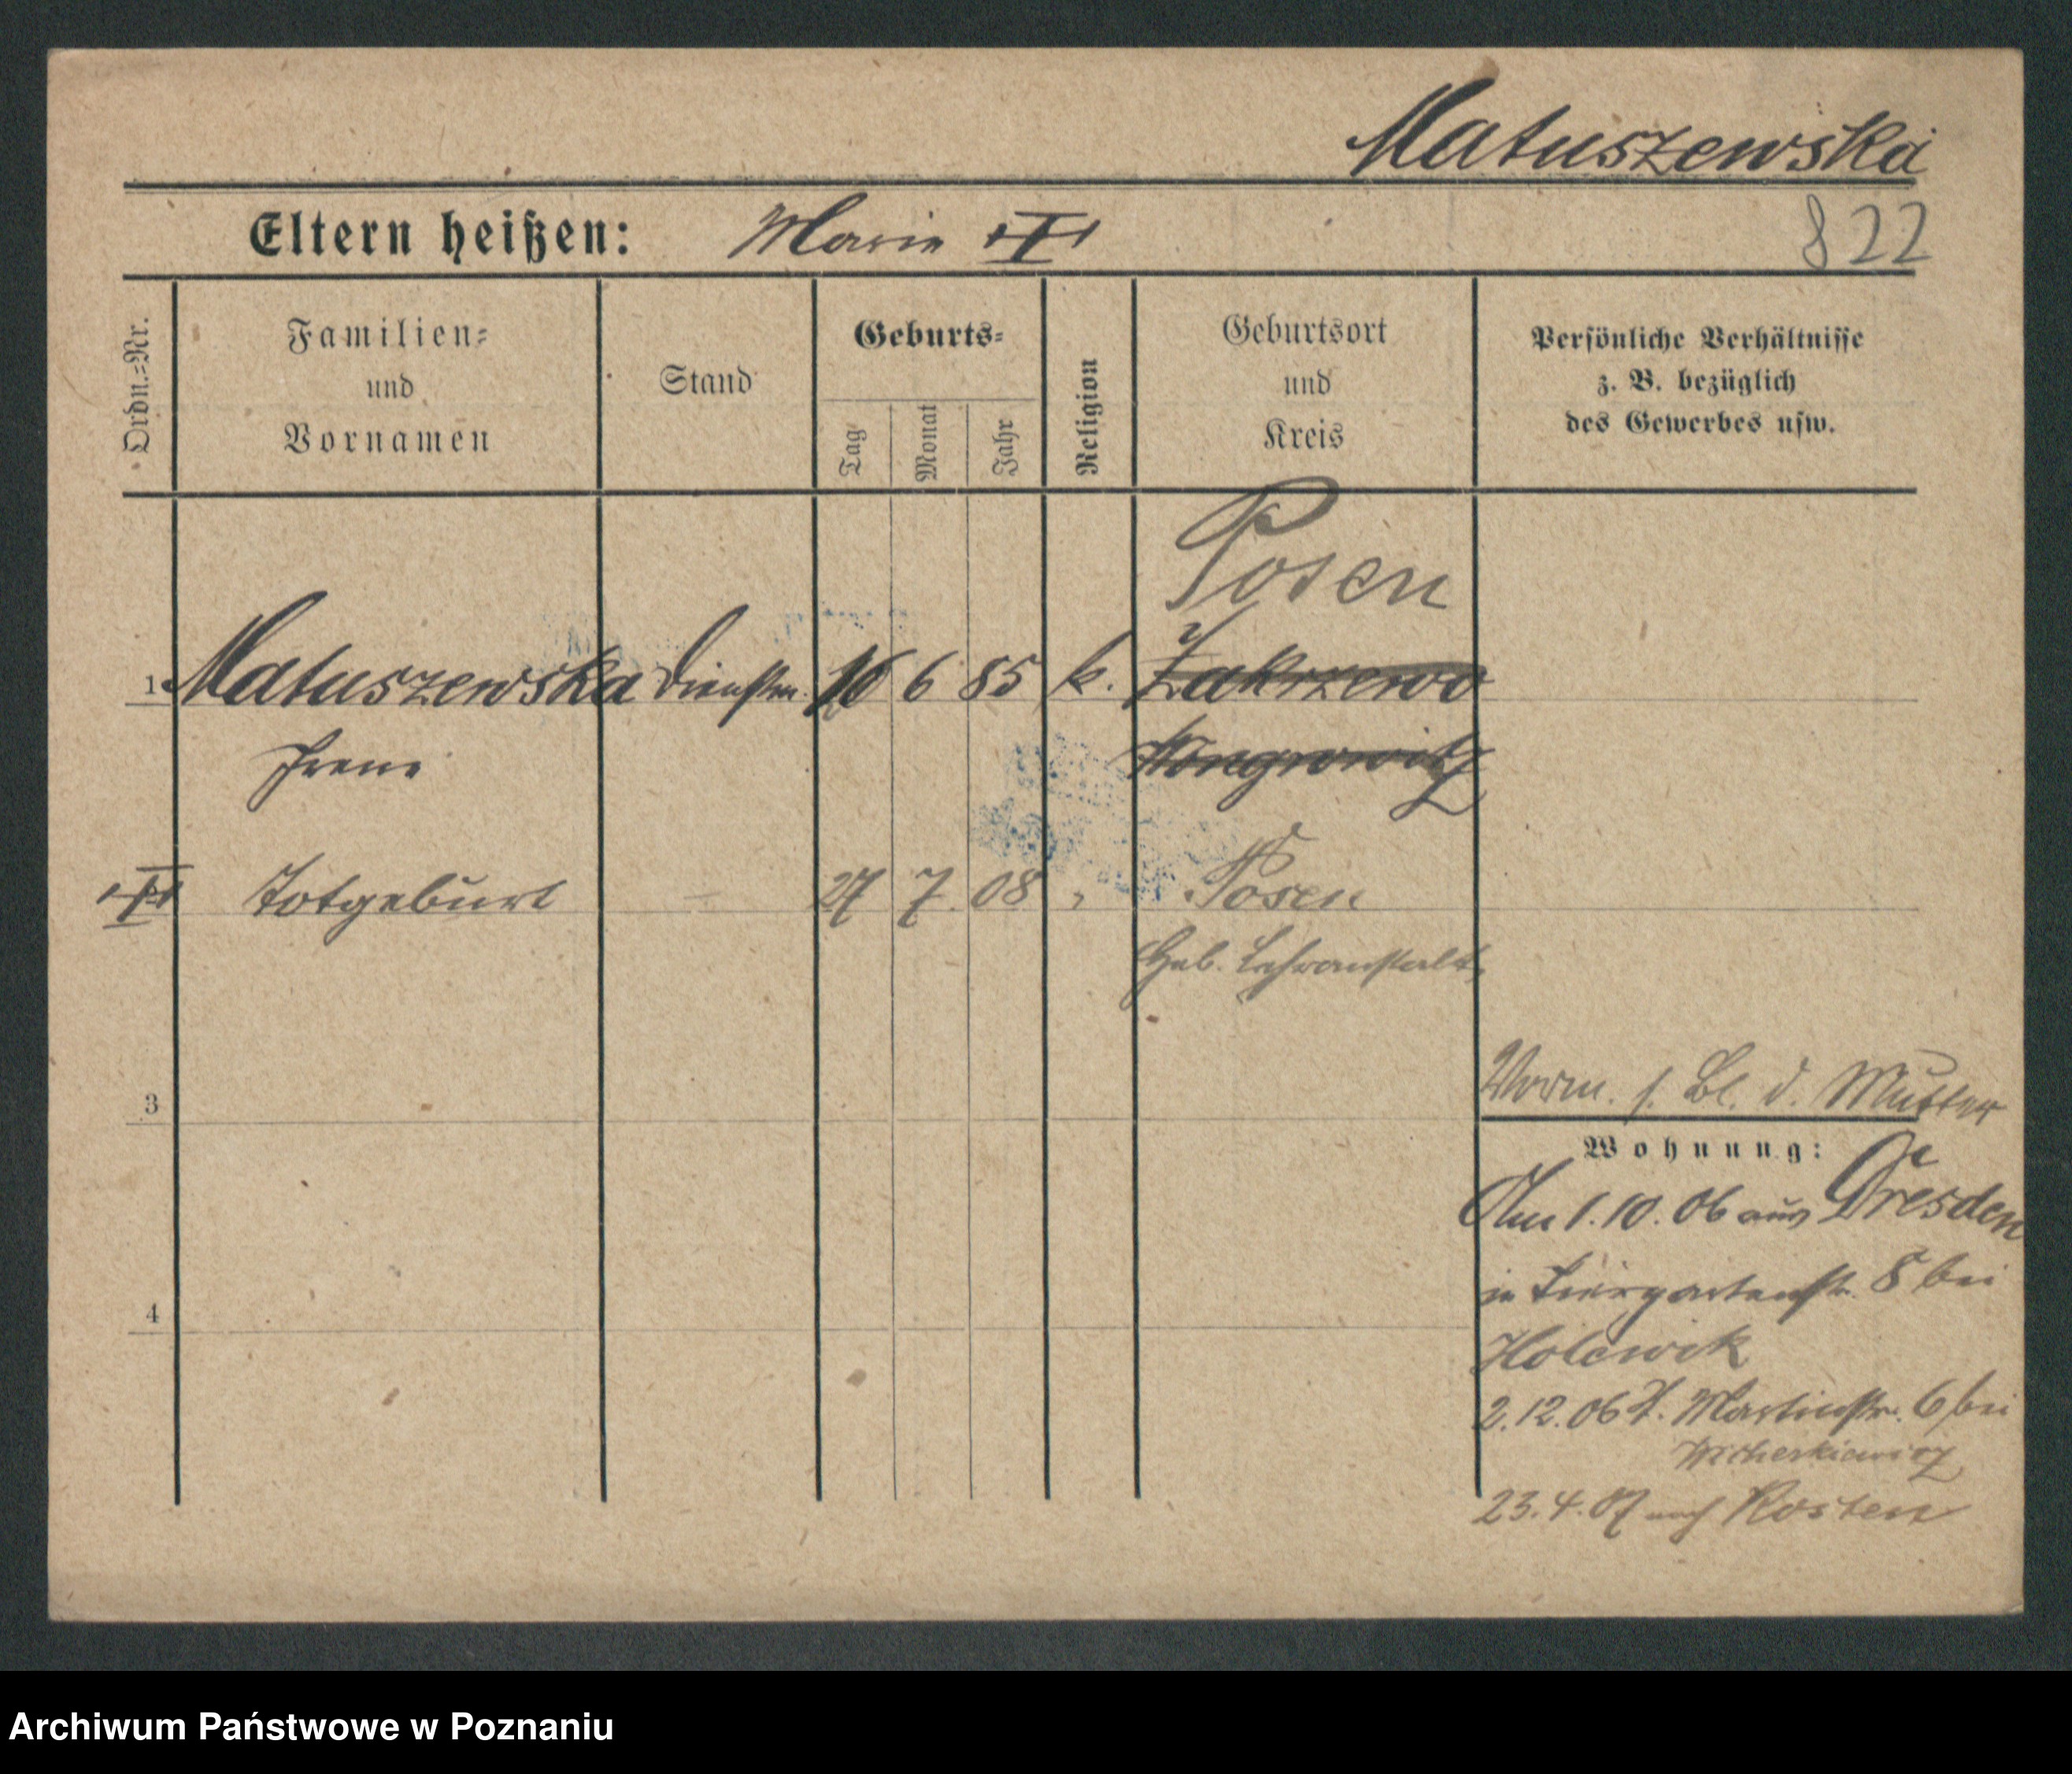 Matuszewska
Eltern heißen: Marie +I+
822
Ordn.-Nr.
Familien-
und
Vornamen
Stand
Geburts-
Tag
Monat
Jahr
Religion
Geburtsort
und
Kreis
Persönliche Verhältnisse
z. B. bezüglich
des Gewerbes usw.
Posen
1 Matuszewska Dienstm. 16 6 85 k. Zakrzewo
Irene Wongrowitz
+I+ Totgeburt - 27 7. 08 " Posen
Heb. Lehranstalt
3
Vorm. s. Bl. d. Mutter
Wohnung:
Am 1.10.06 aus Dresden
in Tiergartenstr. 8 bei
4
Holewik
2.12.06 St. Martinstr. 6 bei
Wicherkiewicz
23.4.07 nach Kosten
Archiwum Państwowe w Poznaniu